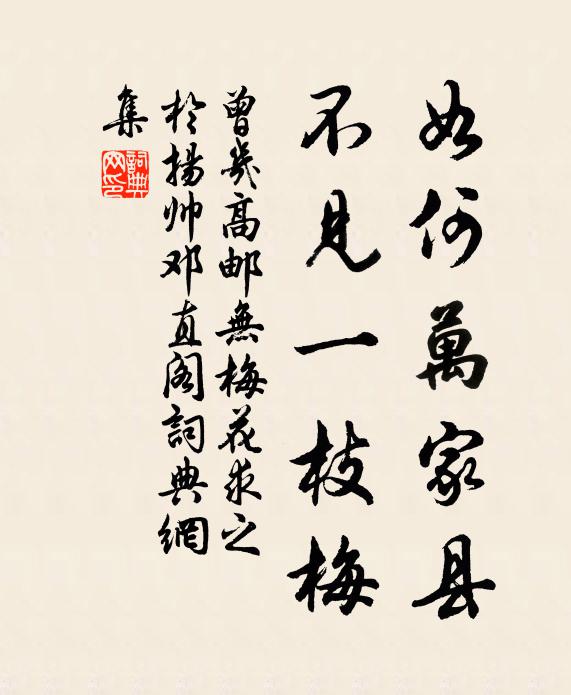 如何萬家县
不見一枝梅
曾幾高邮無梅花求之
於揚帅邓直阁詞典網
集
詞典网印